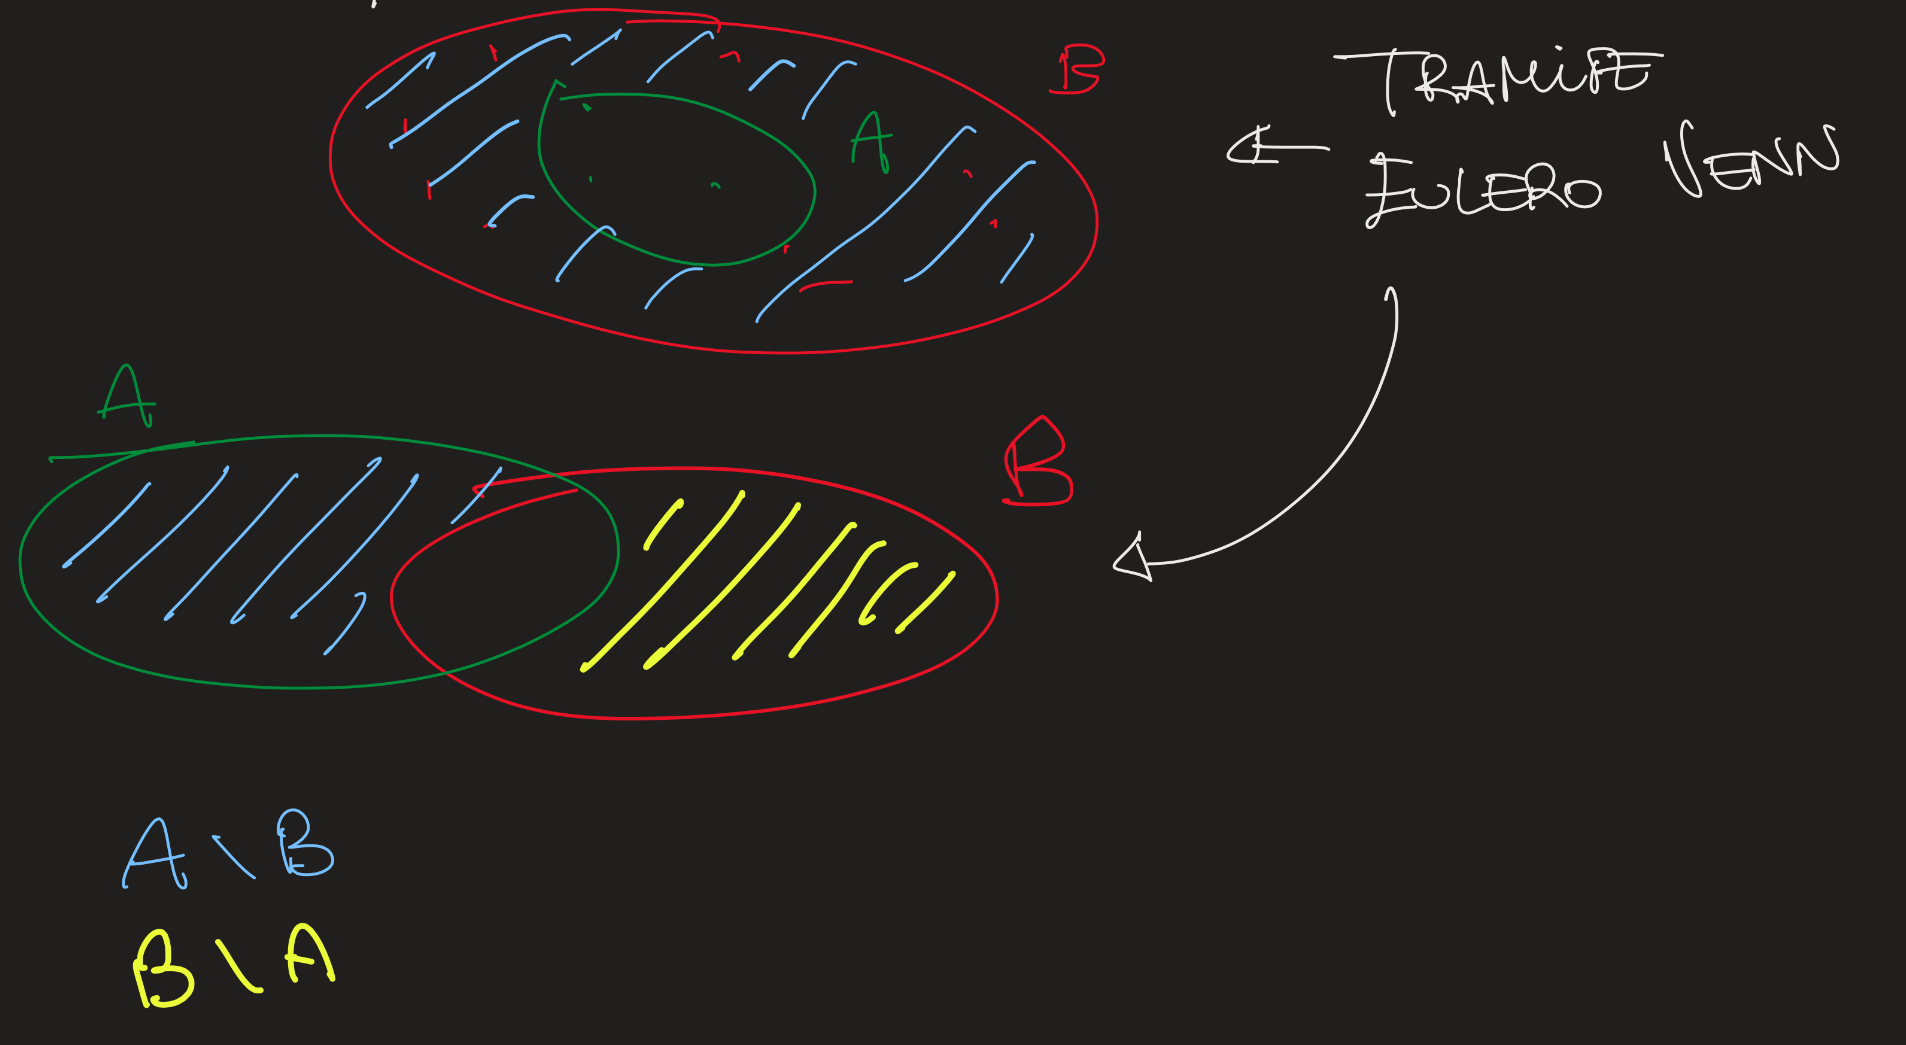 B
TRAMITE
A
← EULERO VENN
A
B
A \ B
B \ A